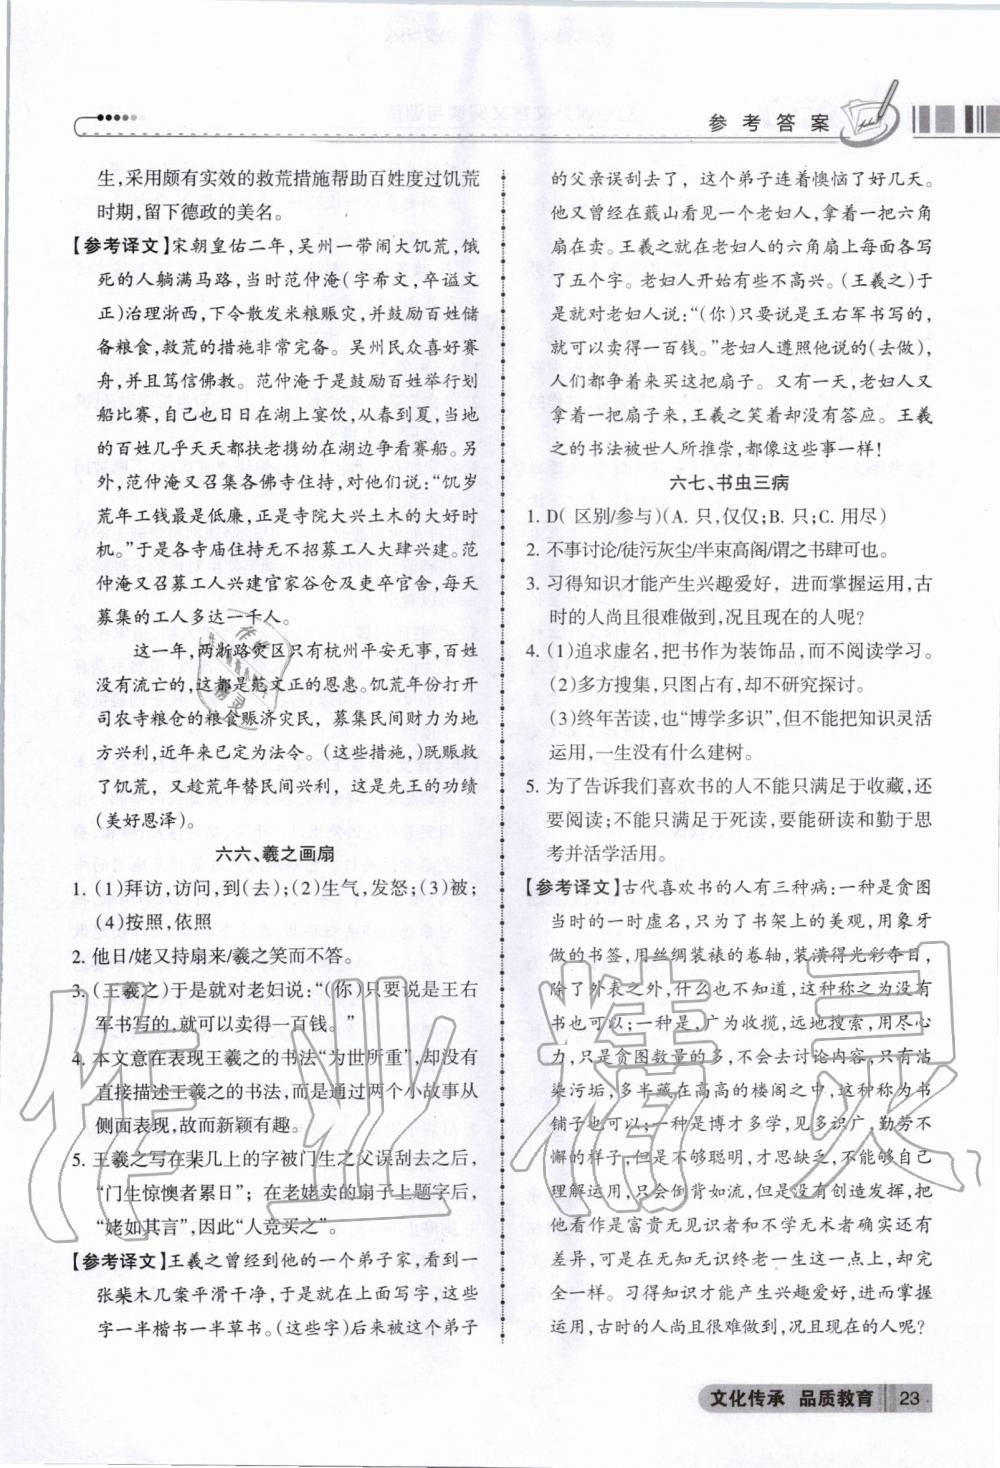 参考答案
生,采用颇有实效的救荒措施帮助百姓度过饥荒
时期,留下德政的美名。
【参考译文】宋朝皇佑二年,吴州一带闹大饥荒,饿
死的人躺满马路,当时范仲淹(字希文,卒谥文
正)治理浙西,下令散发米粮赈灾,并鼓励百姓储
备粮食,救荒的措施非常完备。吴州民众喜好赛
舟,并且笃信佛教。范仲淹于是鼓励百姓举行划
船比赛,自己也日日在湖上宴饮,从春到夏,当地
的百姓几乎天天都扶老携幼在湖边争看赛船。另
外,范仲淹又召集各佛寺住持,对他们说:“饥岁
荒年工钱最是低廉,正是寺院大兴土木的大好时
机。”于是各寺庙住持无不招募工人大肆兴建。范
仲淹又召募工人兴建官家谷仓及吏卒官舍,每天
募集的工人多达一千人。
这一年,两浙路灾区只有杭州平安无事,百姓
没有流亡的,这都是范文正的恩惠。饥荒年份打开
司农寺粮仓的粮食赈济灾民,募集民间财力为地
方兴利,近年来已定为法令。(这些措施,)既赈救
了饥荒,又趁荒年替民间兴利,这是先王的功绩
(美好恩泽)。
六六、羲之画扇
1. (1)拜访,访问,到(去);(2)生气,发怒;(3)被;
(4)按照,依照
2. 他日/姥又持扇来/羲之笑而不答。
3. (王羲之)于是就对老妇说:“(你)只要说是王右
军书写的,就可以卖得一百钱。”
4. 本文意在表现王羲之的书法“为世所重”,却没有
直接描述王羲之的书法,而是通过两个小故事从
侧面表现,故而新颖有趣。
5. 王羲之写在棐几上的字被门生之父误刮去之后,
“门生惊懊者累日”;在老姥卖的扇子上题字后,
“姥如其言”,因此“人竞买之”。
【参考译文】王羲之曾经到他的一个弟子家,看到一
张棐木几案平滑干净,于是就在上面写字,这些
字一半楷书一半草书。(这些字)后来被这个弟子
的父亲误刮去了,这个弟子连着懊恼了好几天。
他又曾经在蕺山看见一个老妇人,拿着一把六角
扇在卖。王羲之就在老妇人的六角扇上每面各写
了五个字。老妇人开始有些生气。(王羲之)于
是就对老妇人说:“(你)只要说是王右军书写的,
就可以卖得一百钱。”老妇人遵照他说的(去做),
人们都争着来买这把扇子。又有一天,老妇人又
拿着一把扇子来,王羲之笑着却没有答应。王羲
之的书法被世人所推崇,都像这些事一样!
六七、书虫三病
1. D( 区别/参与)(A. 只,仅仅;B. 只;C. 用尽)
2. 不事讨论/徒污灰尘/半束高阁/谓之书肆可也。
3. 习得知识才能产生兴趣爱好,进而掌握运用,古
时的人尚且很难做到,况且现在的人呢?
4. (1)追求虚名,把书作为装饰品,而不阅读学习。
(2)多方搜集,只图占有,却不研究探讨。
(3)终年苦读,也“博学多识”,但不能把知识灵活
运用,一生没有什么建树。
5. 为了告诉我们喜欢书的人不能只满足于收藏,还
要阅读;不能只满足于死读,要能研读和勤于思
考并活学活用。
【参考译文】古代喜欢书的人有三种病:一种是贪图
当时的一时虚名,只为了书架上的美观,用象牙
做的书签,用丝绸装裱的卷轴,装潢得光彩夺目,
除了外表之外,什么也不知道,这种称之为没有
书也可以;一种是,广为收揽,远地搜索,用尽心
力,只是贪图数量的多,不会去讨论内容,只有沾
染污垢,多半藏在高高的楼阁之中,这种称为书
铺子也可以;一种是博才多学,见多识广,勤劳不
懈的样子,但是不够聪明,才思缺乏,不能够自己
理解运用,只会倒背如流,但是没有创造发挥,把
他看作是富贵无见识者和学无术者确实还有
差异,但是在无知无识终老一生这一点上,却完
全一样。习得知识才能产生兴趣爱好,进而掌握
运用,古时的人尚且很难做到,况且现在的人呢?
作业精灵
文化传承 品质教育 23